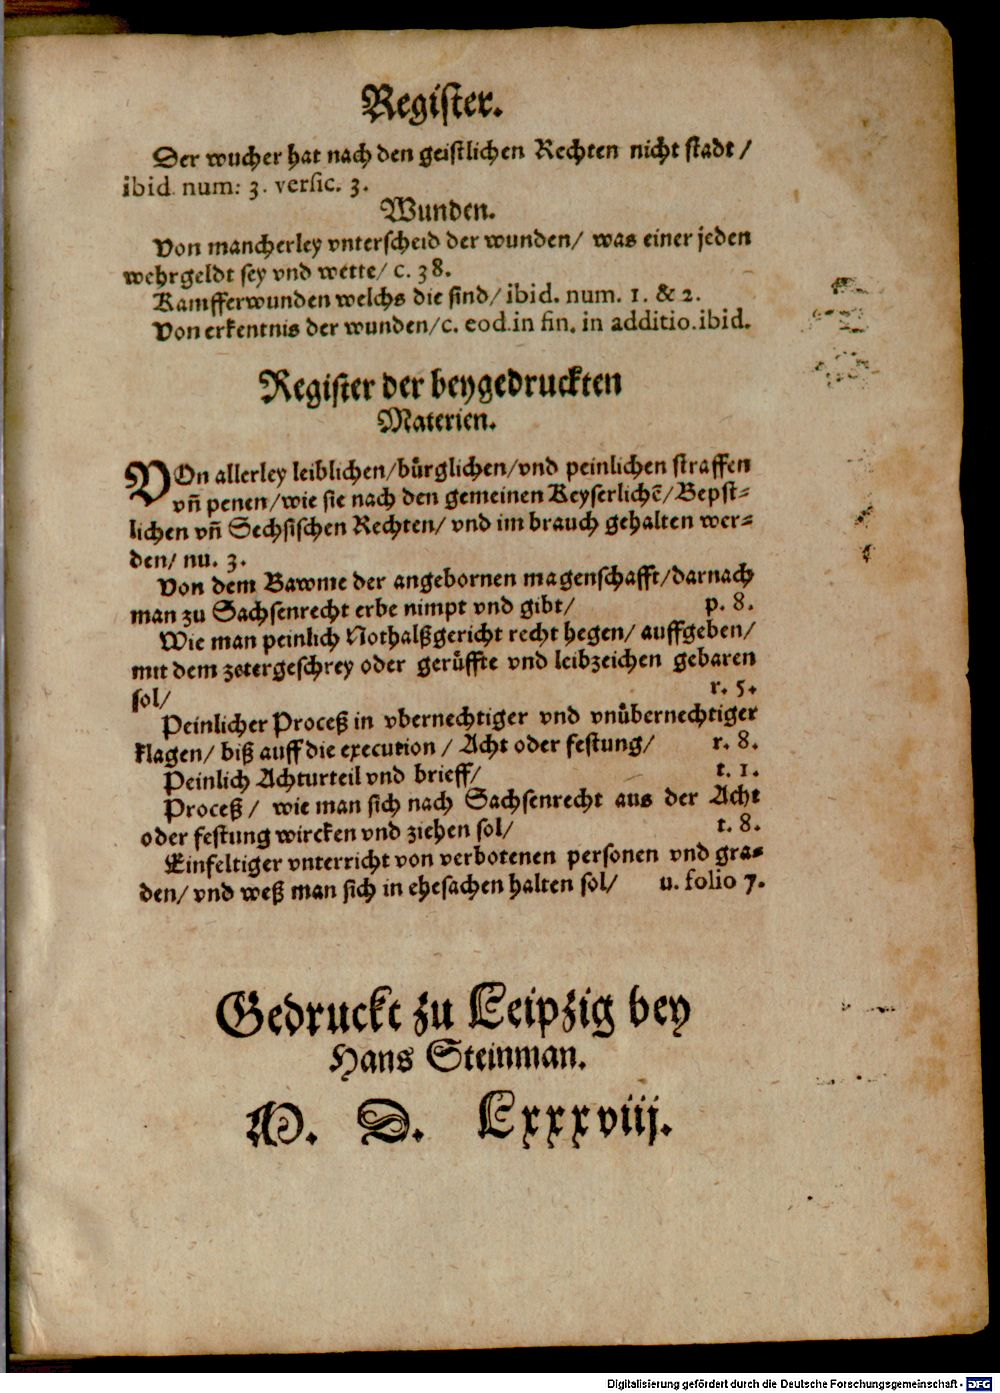 Register.
Der wucher hat nach den geistlichen Rechten nicht stadt /
ibid. num: 3. versic. 3.
Wunden.
Von mancherley vnterscheid der wunden/ was einer jeden
wehrgeldt sey vnd wette/ c. 38.
Kampfferwunden welchs die sind/ ibid. num. 1. & 2.
Von erkentnis der wunden/c. eod.in fin. in additio.ibid.
Register der beygedruckten
Materien.
VOn allerley leiblichen/bürglichen/vnd peinlichen straffen
vñ penen/wie sie nach den gemeinen Keyserlichē/Bepst=
lichen vñ Sechsischen Rechten/ vnd im brauch gehalten wer=
den/ nu. 3.
Von dem Bawme der angebornen magenschafft/darnach
man zu Sachsenrecht erbe nimpt vnd gibt/ p. 8.
Wie man peinlich Nothalßgericht recht hegen/ auffgeben/
mit dem zetergeschrey oder gerüffte vnd leibzeichen gebaren
sol/ r. 5.
Peinlicher Proceß in vbernechtiger vnd vnübernechtiger
klagen/ biß auff die execution / Acht oder festung/ r. 8.
Peinlich Achturteil vnd brieff/ t. 1.
Proceß / wie man sich nach Sachsenrecht aus der Acht
oder festung wircken vnd ziehen sol/ t. 8.
Einfeltiger vnterricht von verbotenen personen vnd gra=
den/ vnd weß man sich in ehesachen halten sol/ u. folio 7.
Gedruckt zu Leipzig bey
Hans Steinman.
M. D. Lxxxviij.
Digitalisierung gefördert durch die Deutsche Forschungsgemeinschaft - DFG